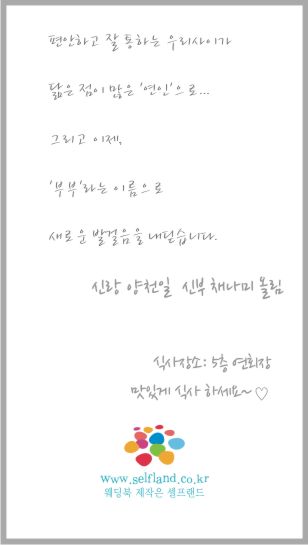 편안하고 잘 통하는 우리사이가
닮은 점이 많은 '연인'으로...
그리고 이제,
'부부'라는 이름으로
새로운 발걸음을 내딛습니다.
신랑 양천일 신부 채나미 올림
식사장소: 5층 연회장
맛있게 식사 하세요~♡
www.selfland.co.kr
웨딩북 제작은 셀프랜드